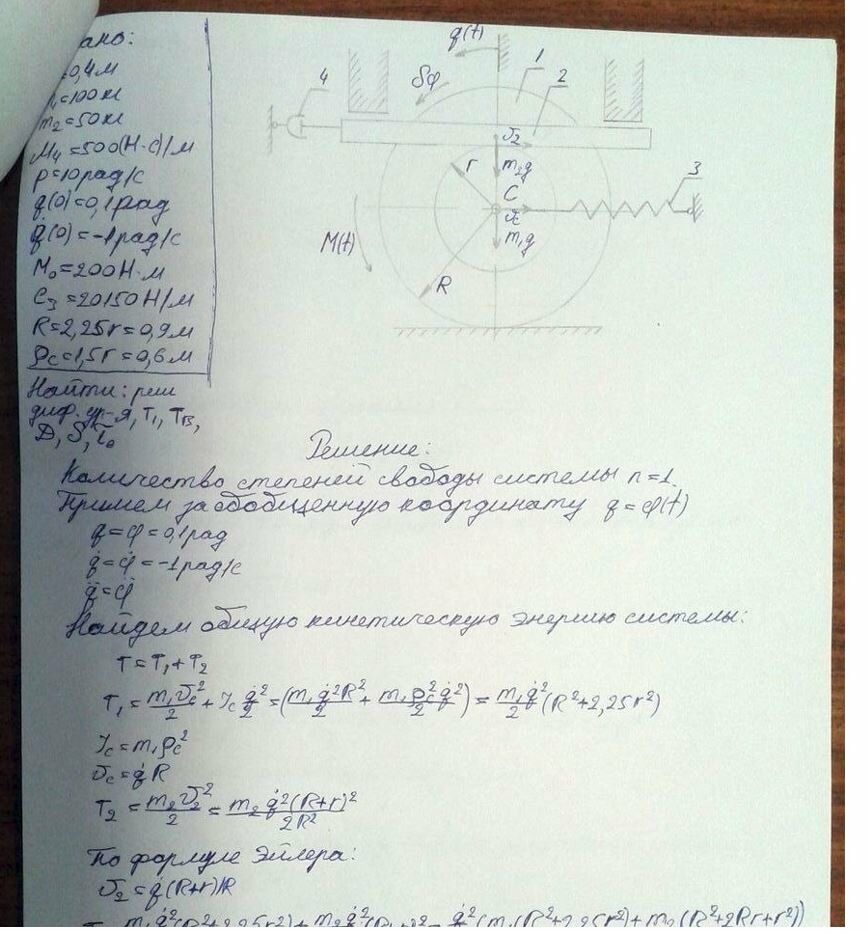 ано:
=0,4м
=100кг
m₂=50кг
μ₄=500(Н·с)/м
p=10рад/с
q(0)=0,1рад
q̇(0)=-1рад/с
M₀=200Н·м
C₃=20150Н/м
R=2,25r=0,9м
ρc=1,5r=0,6м
Найти: реш
диф. ур-я, T₁, Tв,
D, δ, τ₀
q(t)
δφ
1
2
4
V₂
m₂g
r
C
Vc
3
m₁g
M(t)
R
Решение:
Количество степеней свободы системы n=1.
Примем за обобщенную координату q=φ(t)
q=φ=0,1рад
q̇=φ̇=-1рад/с
q̈=φ̈
Найдем общую кинетическую энергию системы:
T=T₁+T₂
T₁=m₁Vc²/2+Jc q̇²/2=(m₁q̇²R²/2+m₁ρc²q̇²/2)=m₁q̇²/2(R²+2,25r²)
Jc=m₁ρc²
Vc=q̇R
T₂=m₂V₂²/2=m₂q̇²(R+r)²/2R²
По формуле Эйлера:
V₂=q̇(R+r)/R
m₁q̇²(R²+2,25r²)+m₂q̇²(R+r)²=q̇²(m₁(R²+2,25r²)+m₂(R²+2Rr+r²))